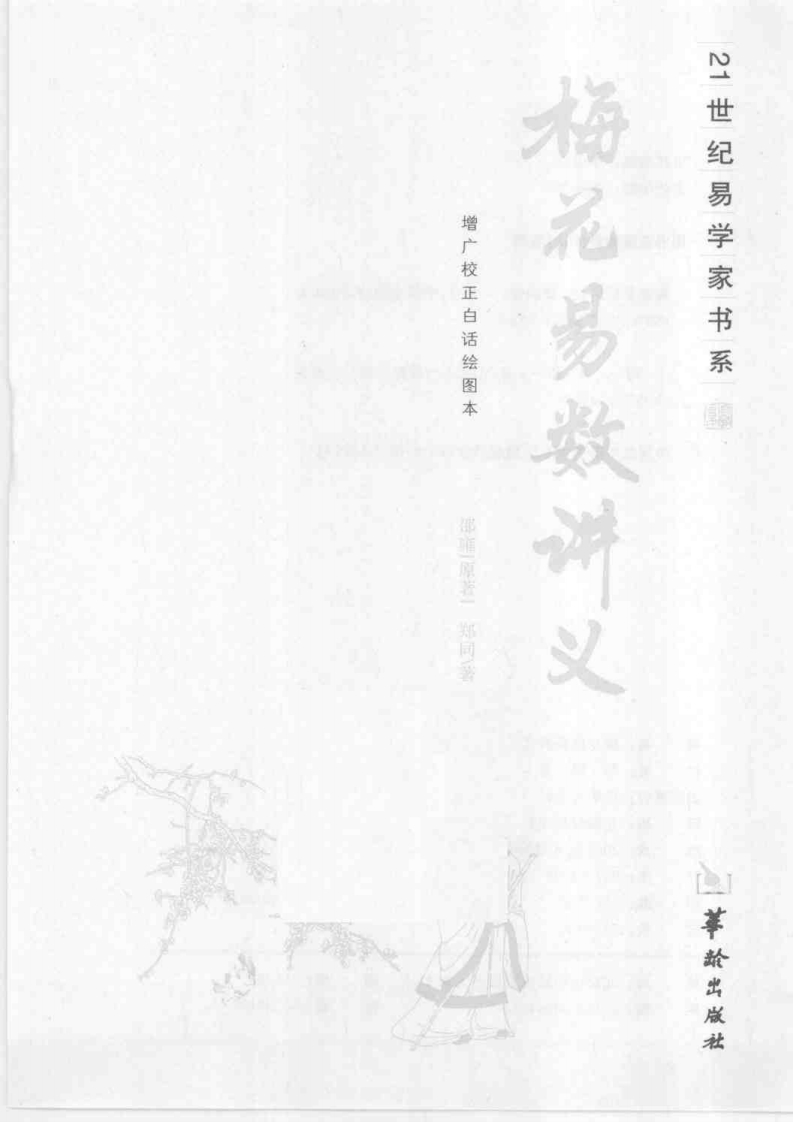 21世纪易学家书系
梅花易数讲义
增广校正白话绘图本
邵雍|原著| 郑同|著
華龄出版社